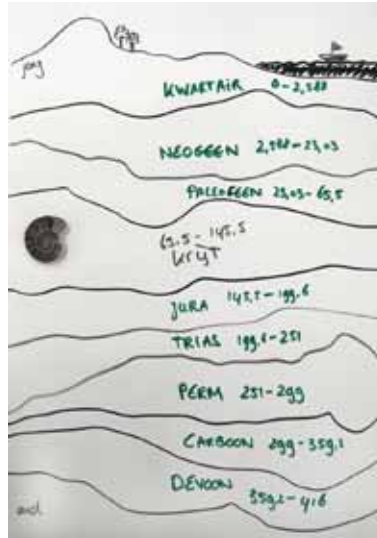 jong
KWARTAIR 0-2,588
NEOGEEN 2,588-23,03
PALEOGEEN 23,03-65,5
65,5-145,5
KRIJT
JURA 145,5-199,6
TRIAS 199,6-251
PERM 251-299
CARBOON 299-359,2
DEVOON
359,2-416
oud